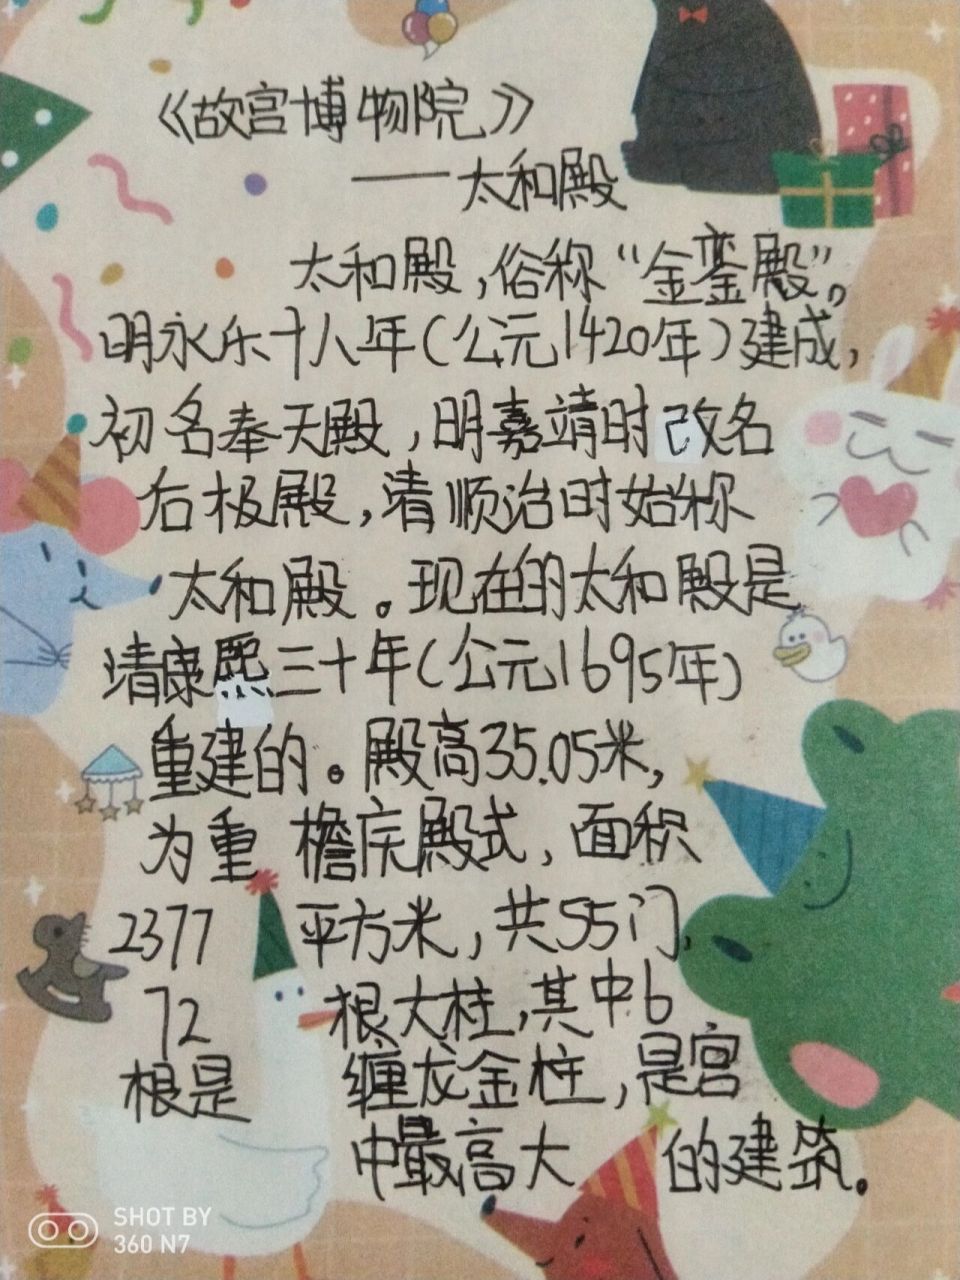 《故宫博物院》
——太和殿
太和殿，俗称“金銮殿”。
明永乐十八年（公元1420年）建成，
初名奉天殿，明嘉靖时改名
后极殿，清顺治时始称
太和殿。现在的太和殿是
清康熙三十年（公元1695年）
重建的。殿高35.05米，
为重檐庑殿式，面积
2377平方米，共55门，
72根大柱，其中6
根是缠龙金柱，是宫
中最高大的建筑。
SHOT BY
360 N7